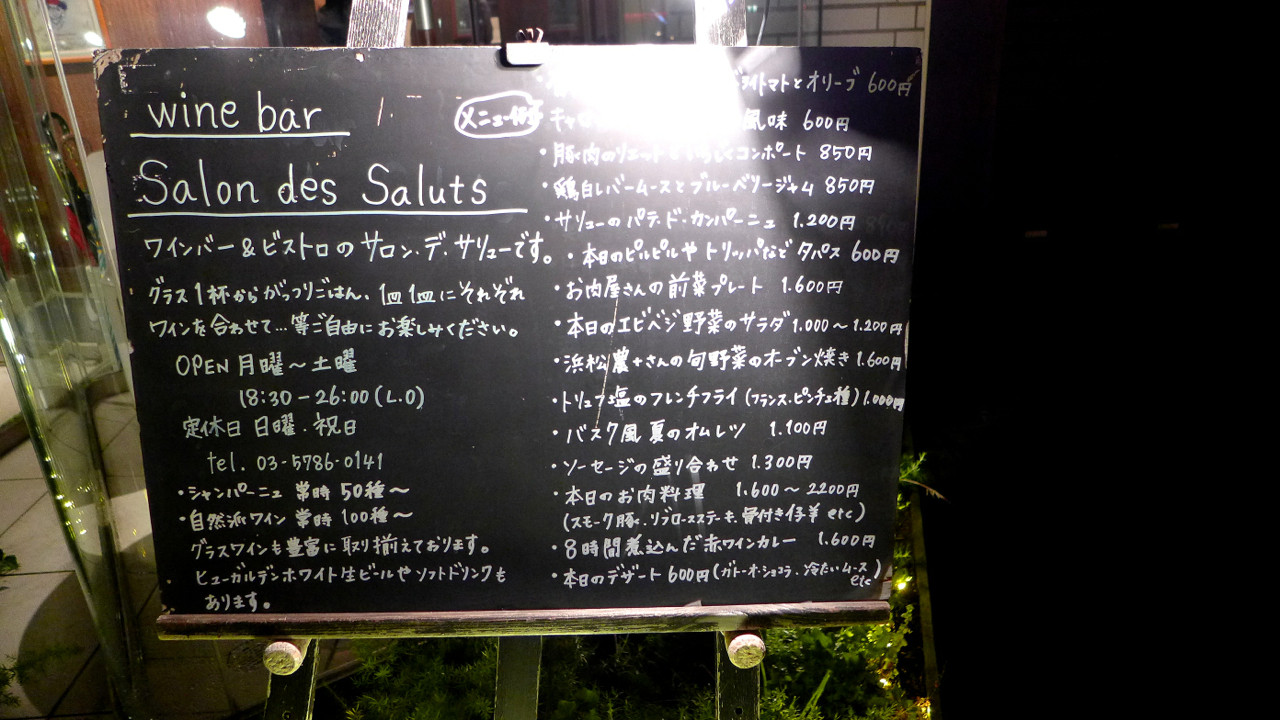 wine bar
Salon des Saluts
ワインバー&ビストロのサロン・デ・サリューです。
グラス1杯からがっつりごはん、1皿1皿にそれぞれ
ワインを合わせて…等ご自由にお楽しみください。
OPEN 月曜〜土曜
18:30-26:00(L.O)
定休日 日曜・祝日
tel. 03-5786-0141
・シャンパーニュ 常時50種〜
・自然派ワイン 常時100種〜
グラスワインも豊富に取り揃えております。
ヒューガルデンホワイト生ビールやソフトドリンクも
あります。
メニュー
ドライトマトとオリーブ 600円
風味 600円
・豚肉のリエットと コンポート 850円
・鶏白レバームースとブルーベリージャム 850円
・サリューのパテ・ド・カンパーニュ 1.200円
・本日のピルピルやトリッパなどタパス 600円
・お肉屋さんの前菜プレート 1.600円
・本日のエビベジ野菜のサラダ 1.000〜1.200円
・浜松農+さんの旬野菜のオーブン焼き 1.600円
・トリュフ塩のフレンチフライ(フランス・ピンチェ種) 1.000円
・バスク風 夏のオムレツ 1.100円
・ソーセージの盛り合わせ 1.300円
・本日のお肉料理 1.600〜2200円
(スモーク豚、リブロースステーキ、骨付き仔羊 etc)
・8時間煮込んだ赤ワインカレー 1.600円
・本日のデザート 600円(ガトーオショコラ・冷たいムース
etc)